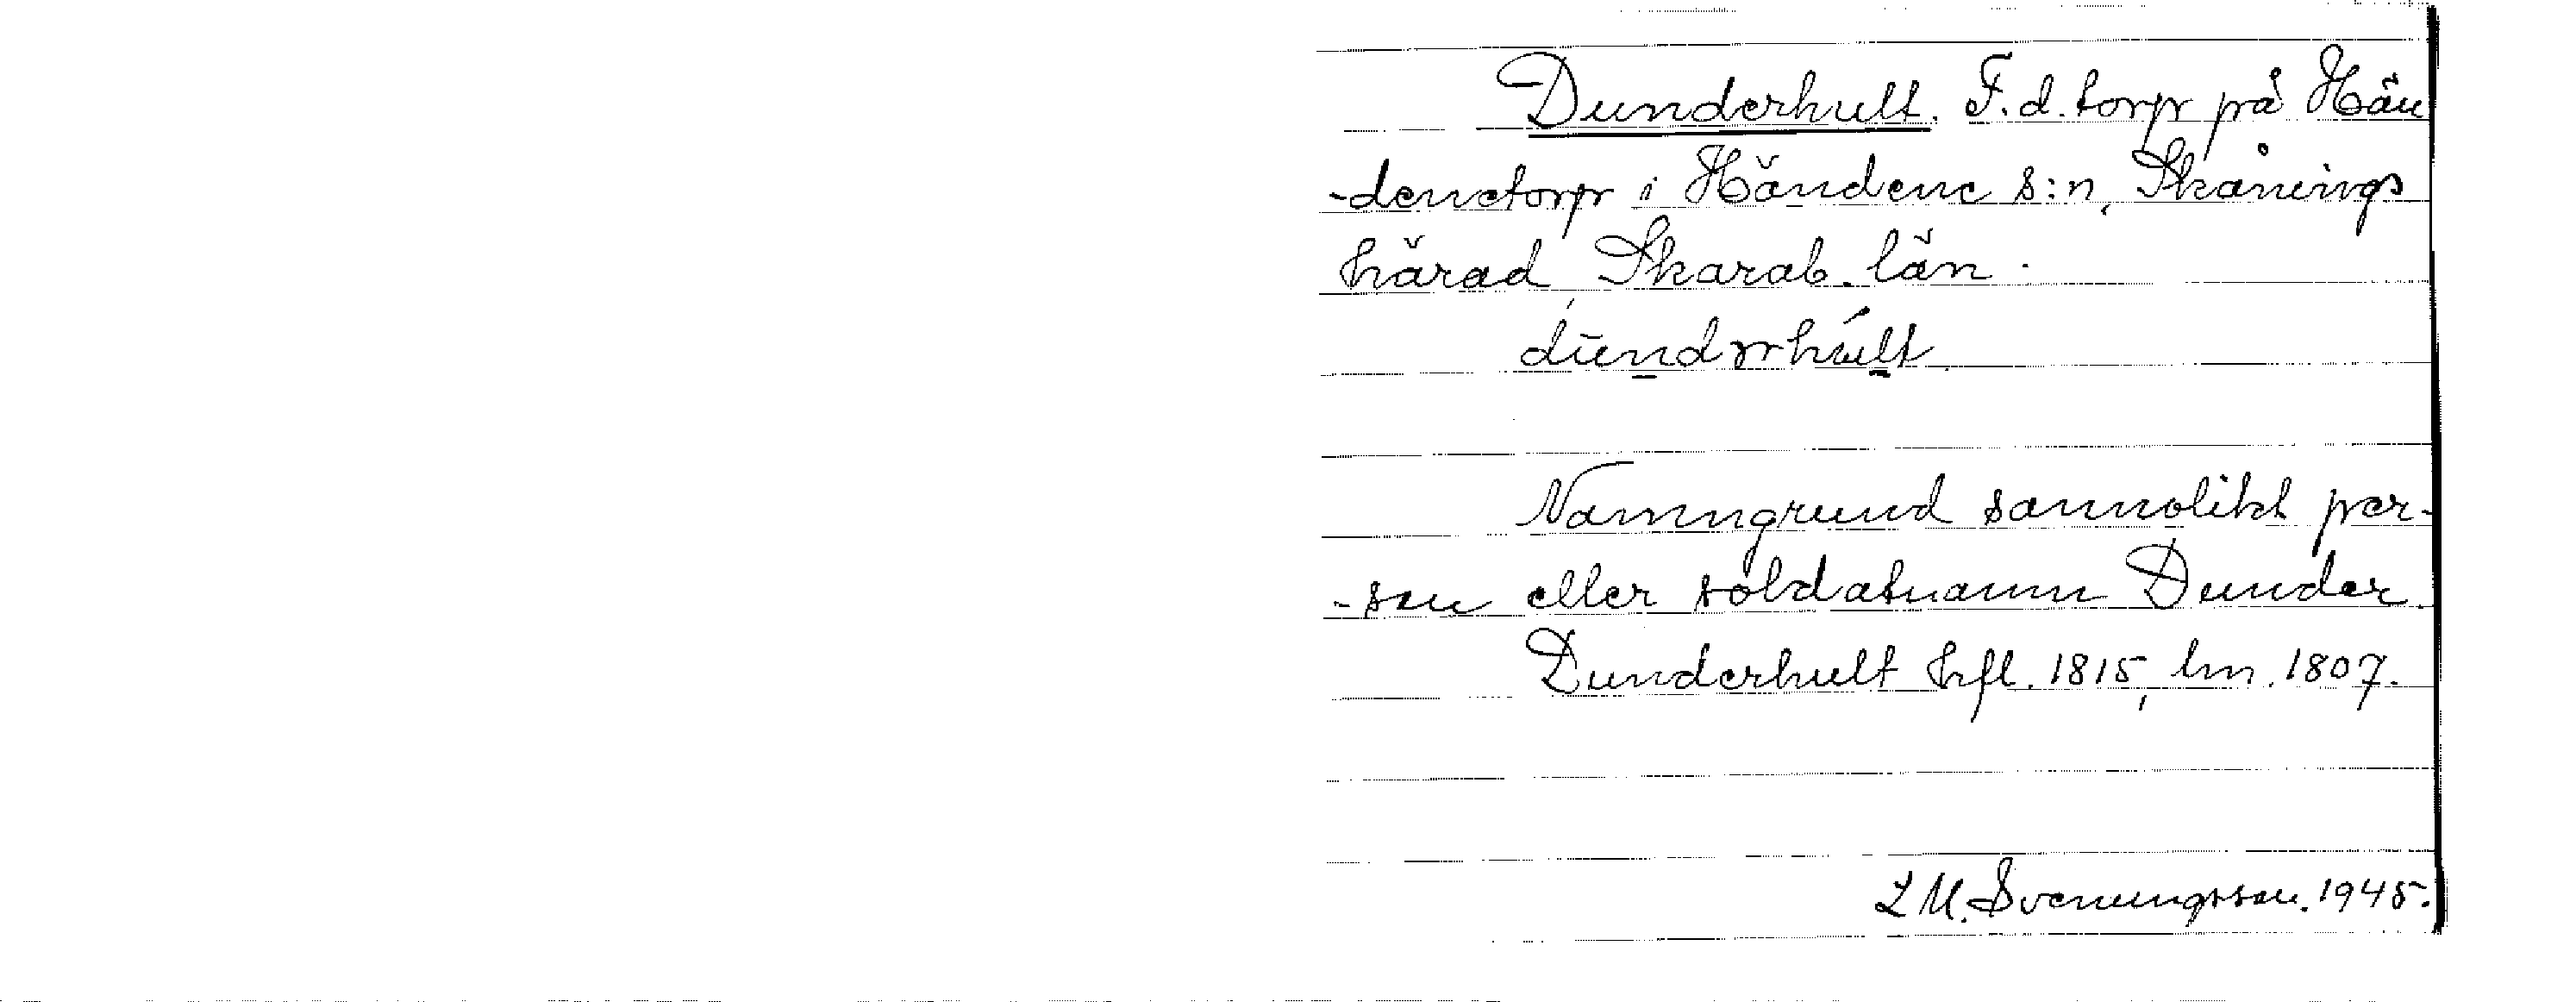 Dunderhult. F.d. torp på Hän
-denetorp i Händene s:n, Skånings
härad, Skarab. län.
dūndrhùlt
Namngrund sannolikt per-
-son eller soldatnamn Dunder.
Dunderhult hfl. 1815, lm. 1807.
L M. Svenungsson. 1945.